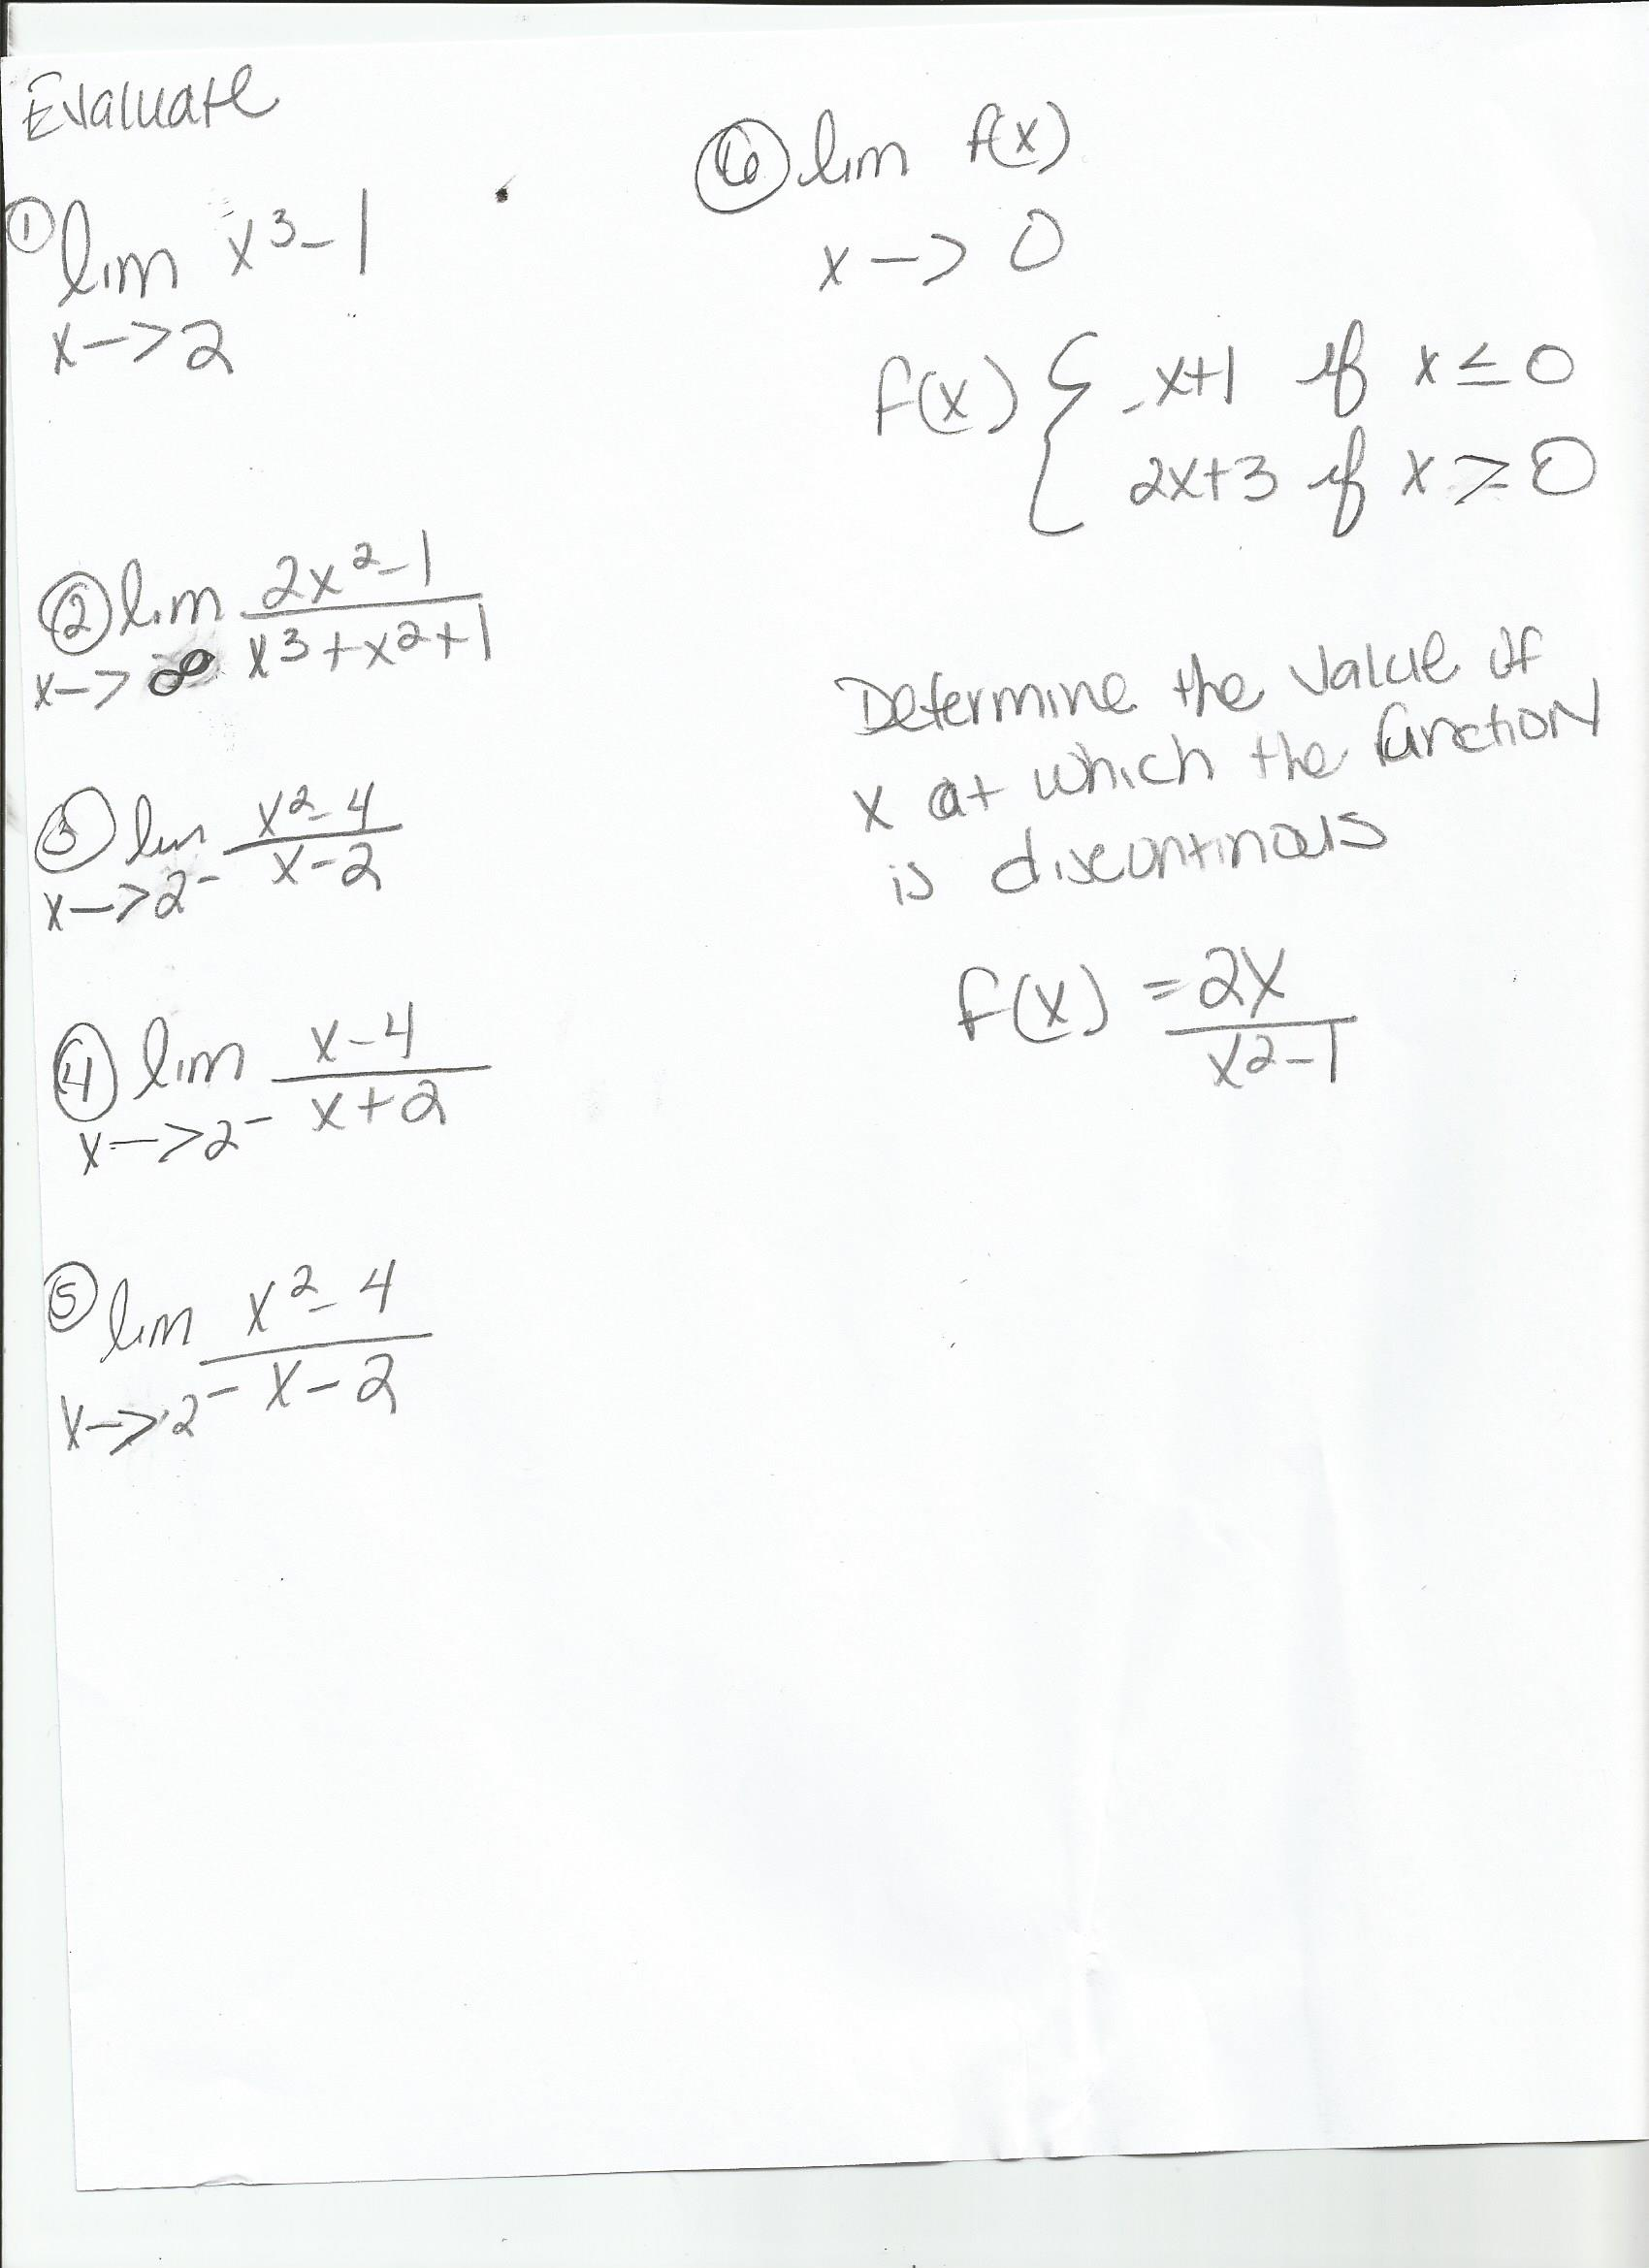 Evaluate
① lim x³-1
x->2
② lim 2x²-1
x³+x²+1
x-> ∞
③ lim x²-4
x-2
x->2⁻
④ lim x-4
x+2
x->2⁻
⑤ lim x²-4
x-2
x->2⁻
⑥ lim f(x)
x -> 0
f(x) { -x+1 if x≤0
2x+3 if x ≥ 0
Determine the value of
x at which the function
is discontinous
f(x) = 2x
x²-1